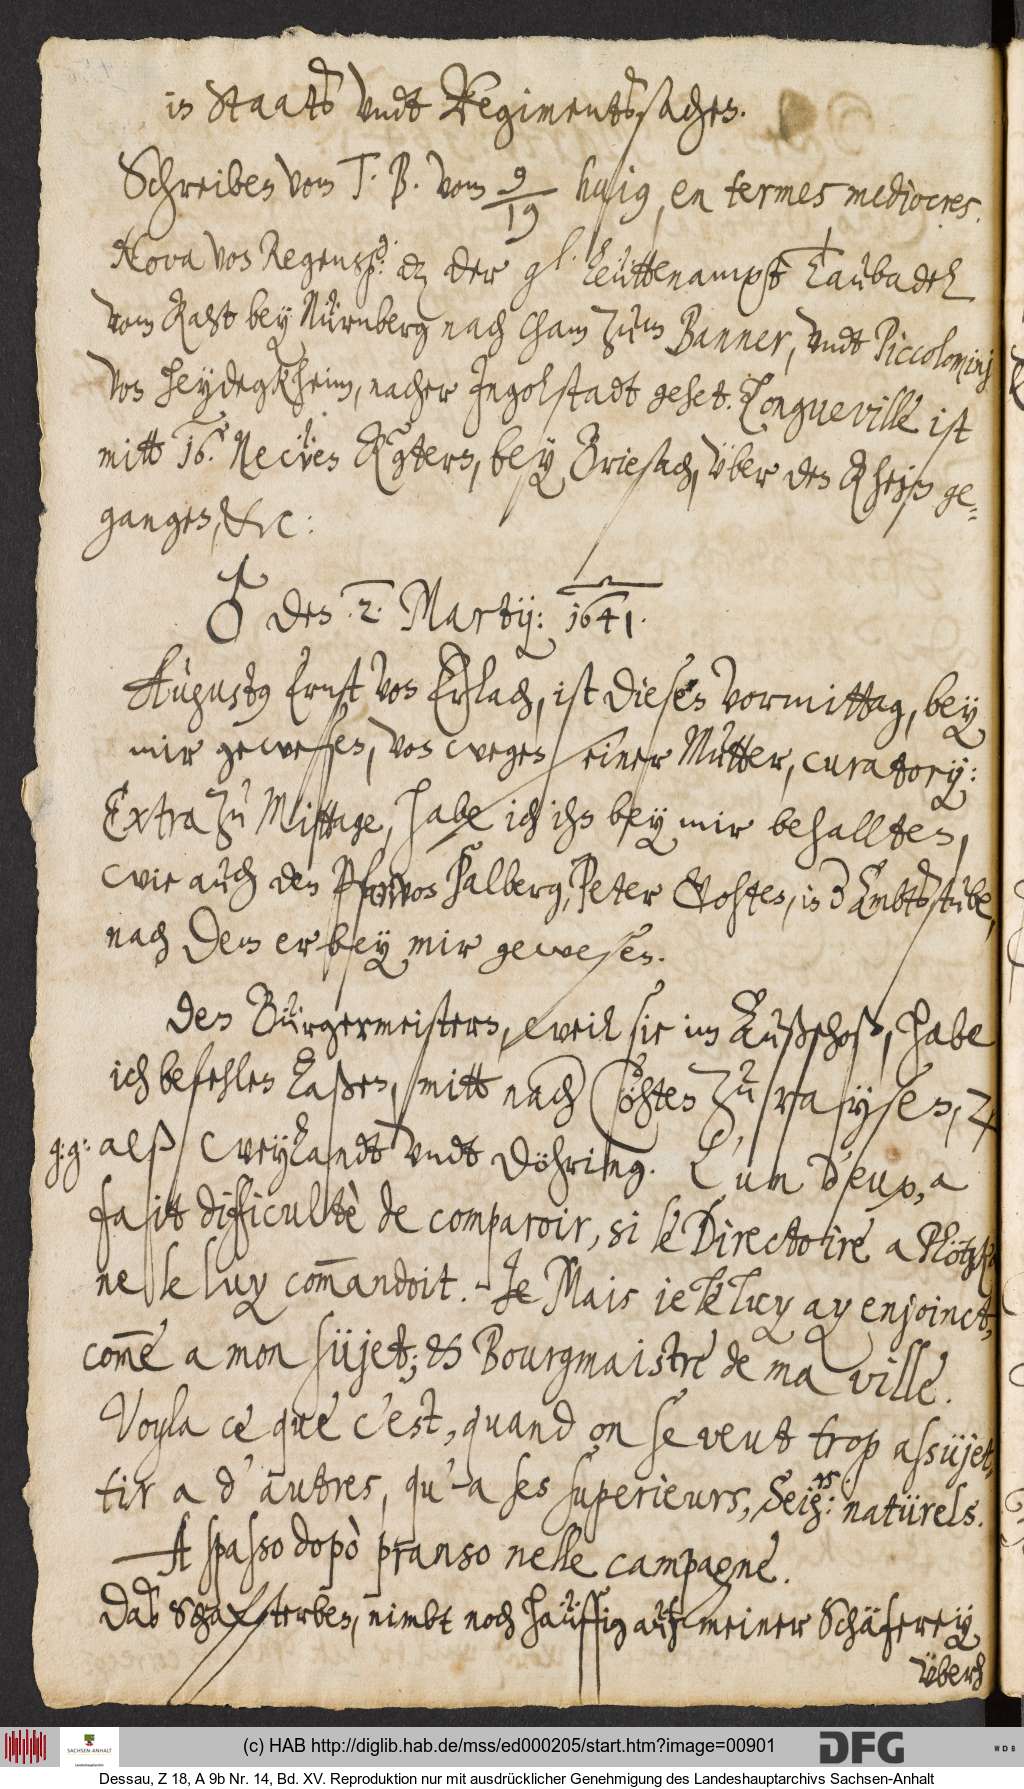 in Staats vndt Regimentssachen.
Schreiben vom T. B. vom 9/19 huius, en termes mediocres.
Nova von Regensp: dz der gl. Leüttenampt Taubadel
vom Raht bey Nürnberg nach Cham zum Banner, vndt Piccolominj
von heydegkheim, nacher Ingolstadt gehet. Longueville ist
mitt 16. Newen Rgtern, bey Briesach, vber den Rhein ge-
gangen, &c:
♂ den .2. Martij: 1641.
Augustus Ernst von Erlach, ist diesen vormittag, bey
mir gewesen, von wegen seiner Mutter, curatorij:
Extra zu Mittage, habe ich ihn bey mir behallten,
wie auch den von halberg, Peter Gohten, in Ambtsstube,
nach dem er bey mir gewesen.
Den Bürgermeistern, weil sie im Außschoß, habe
ich befehlen laßen, mitt nach Cöhten zu raysen,
g: g: alß weylandt vndt Döhring. L'un d'eux, a
fait difficultè de comparoir, si le Directoire a Plötzk
ne le luy com̄andoit. - Je Mais je le luy ay enjoinct,
com̄e a mon süjet; & Bourgmaistre de ma ville.
Voyla ce que c'est, quand on se veut trop assüjet-
tir a d'autres, qu'-a ses superieurs, Seigrs: natürels.
A spasso dopò pranso nelle campagne.
Das Schafsterben, nimbt noch hauffig auf meiner Schäferey
vberh
(c) HAB http://diglib.hab.de/mss/ed000205/start.htm?image=00901
SACHSEN-ANHALT
DFG
WDB
Dessau, Z 18, A 9b Nr. 14, Bd. XV. Reproduktion nur mit ausdrücklicher Genehmigung des Landeshauptarchivs Sachsen-Anhalt